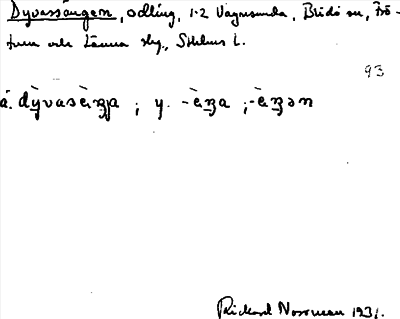 Dyvassängem, odling, 1-2 Vagnsunda, Blidö sn, Frö-
tuna och Länna skg., Sthlms l.
93
ä. dỳvasèŋja ; y. -èŋa ; -èŋən
Rickard Norrman 1931.